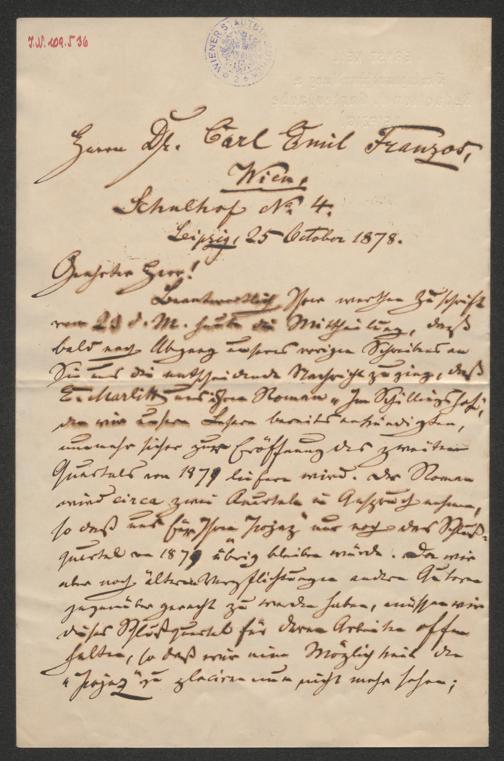 I.N. 109.536
WIENER STADTBIBLIOTHEK
Herrn Dr. Carl Emil Franzos,
Wien,
Schulhof No. 4.
Leipzig, 25 October 1878.
Geehrter Herr!
Beantwortlich Ihrer werthen Zuschrift
vom 23 d. M. heute die Mittheilung, daß
bald nach Abgang unseres vorigen Schreibens an
Sie uns die entscheidende Nachricht zuging, daß
E. Marlitt uns ihren Roman „Im Schillingshof",
den wir unsern Lesern bereits ankündigten,
nunmehr sicher zur Eröffnung des zweiten
Quartals von 1879 liefern wird. Der Roman
wird circa zwei Quartale in Anspruch nehmen,
so daß uns für Ihren „Pojaz" nur noch das Schluß-
quartal von 1879 übrig bleiben würde. Da wir
aber noch ältern Verpflichtungen andern Autoren
gegenüber gerecht zu werden haben, müssen wir
dieses Schlußquartal für deren Arbeiten offen
halten, so daß wir eine Möglichkeit den
„Pojaz" zu placiren nun nicht mehr sehen;